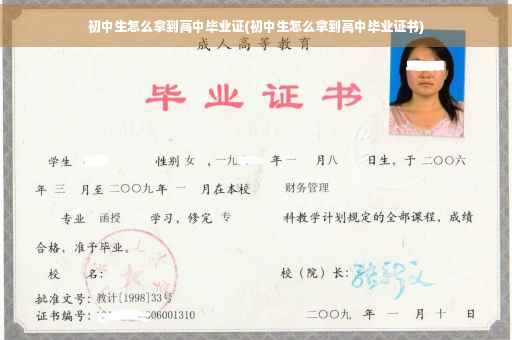 初中生怎么拿到高中毕业证(初中生怎么拿到高中毕业证书)
成人高等教育
毕业证书
学生 性别 女 ,一九 年 一 月八 日生，于 二〇〇六
年 三 月至 二〇〇九 年 一 月在本校 财务管理
专业 函授 学习，修完 专 科教学计划规定的全部课程，成绩
合格，准予毕业。
校 名： 校（院）长：
批准文号：教计[1998]33号
证书编号： 06001310 二〇〇九 年 一 月 十 日